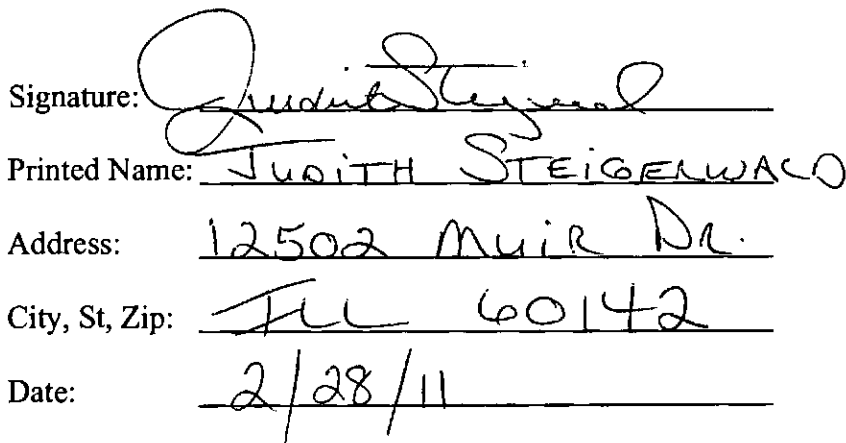 Signature: Judith Steigerwald
Printed Name: JUDITH STEIGERWALD
Address: 12502 MUIR DR.
City, St, Zip: ILL 60142
Date: 2/28/11